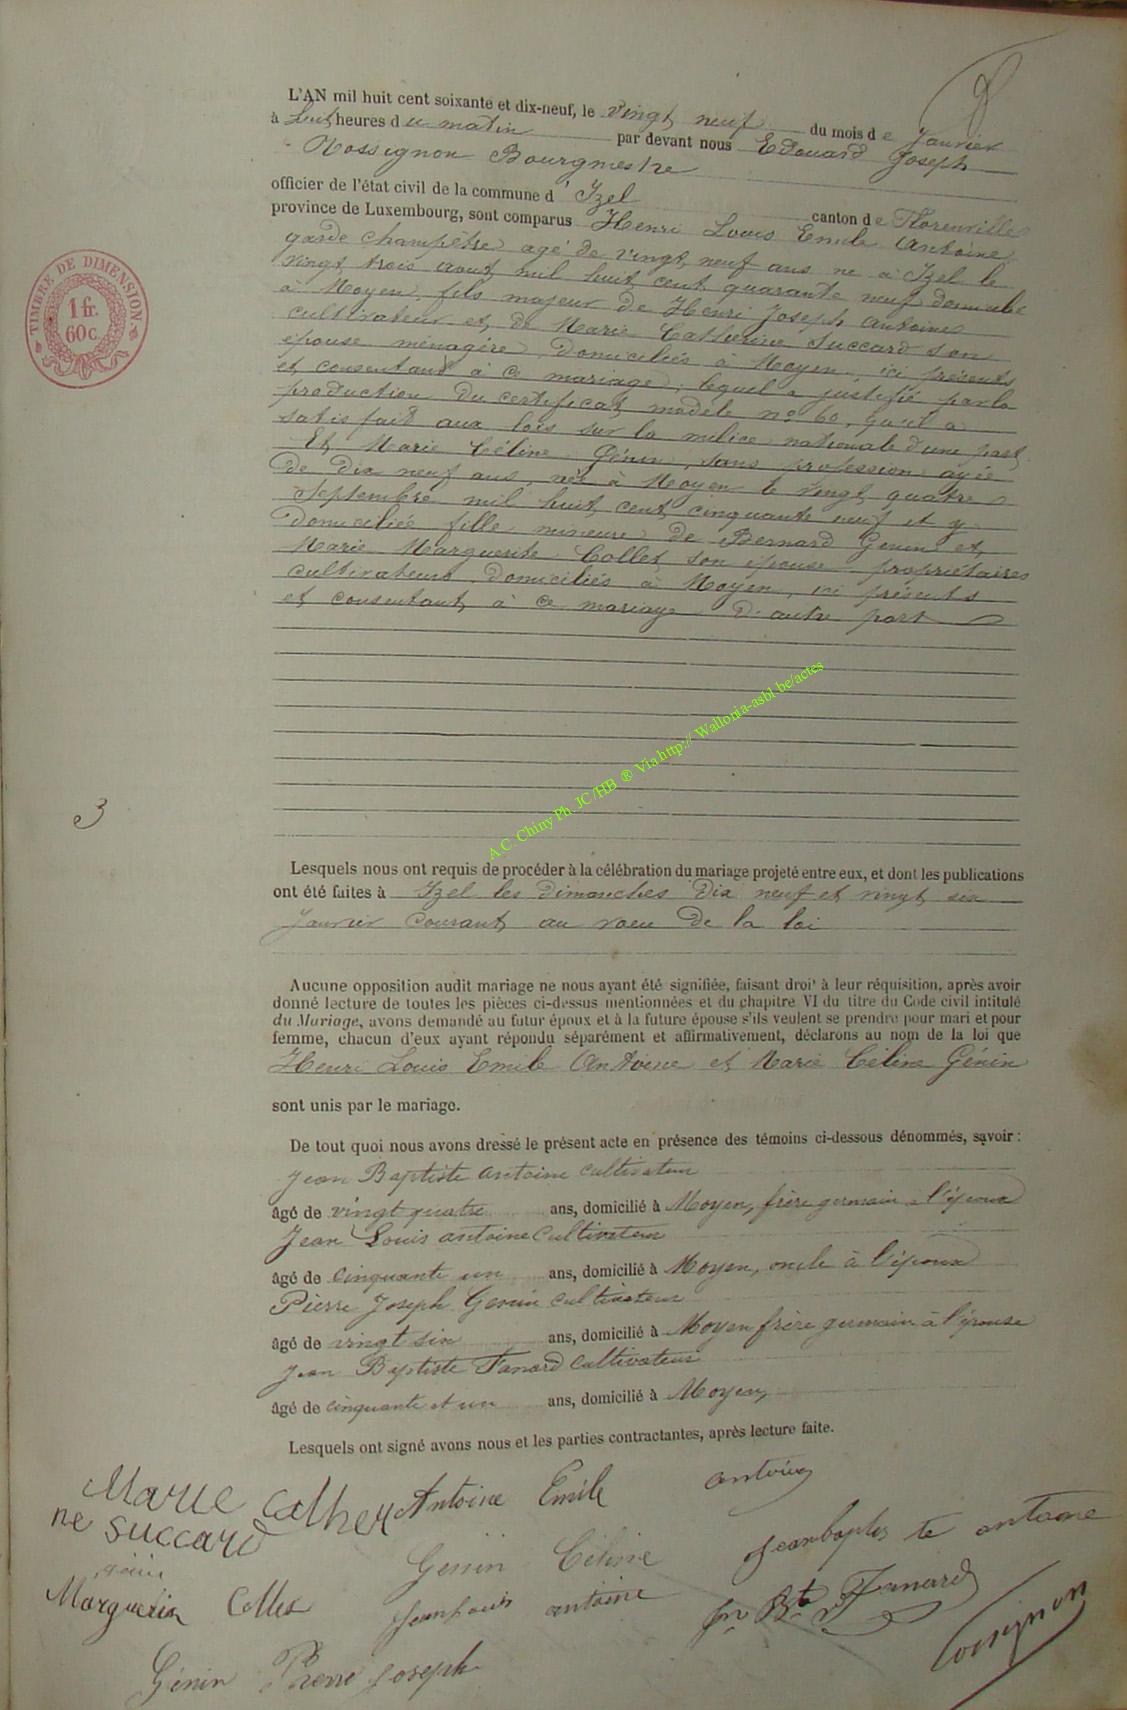 L'AN mil huit cent soixante et dix-neuf, le vingt neuf du mois de Janvier
à huit heures du matin par devant nous Edouard Joseph
Rossignon Bourgmestre
officier de l'état civil de la commune d'Izel canton de Florenville
province de Luxembourg, sont comparus Henri Louis Emile Antoine
garde champêtre agé de vingt neuf ans né à Izel le
vingt trois aout mil huit cent quarante neuf domicilié
à Moyen, fils majeur de Henri Joseph Antoine
cultivateur et de Marie Catherine Succard son
épouse ménagère, domiciliés à Moyen, ici présents
et consentant à ce mariage, lequel a justifié par la
production du certificat modèle n° 60, qu'il a
satisfait aux lois sur la milice nationale d'une part
Et Marie Céline Génin, sans profession agée
de dix neuf ans, née à Moyen le vingt quatre
Septembre mil huit cent cinquante neuf et y
domiciliée fille mineure de Bernard Genin et
Marie Marguerite Collet son épouse propriétaires
cultivateurs domiciliés à Moyen, ici présents
et consentant à ce mariage d'autre part
TIMBRE DE DIMENSION
1 fr.
60 c.
3
Lesquels nous ont requis de procéder à la célébration du mariage projeté entre eux, et dont les publications
ont été faites à Izel les dimanches dix neuf et vingt six
Janvier courant au voeu de la loi
Aucune opposition audit mariage ne nous ayant été signifiée, faisant droi' à leur réquisition, après avoir
donné lecture de toutes les pièces ci-dessus mentionnées et du chapitre VI du titre du Code civil intitulé
du Mariage, avons demandé au futur époux et à la future épouse s'ils veulent se prendre pour mari et pour
femme, chacun d'eux ayant répondu séparément et affirmativement, déclarons au nom de la loi que
Henri Louis Emile Antoine et Marie Céline Génin
sont unis par le mariage.
De tout quoi nous avons dressé le présent acte en présence des témoins ci-dessous dénommés, savoir :
Jean Baptiste Antoine cultivateur
âgé de vingt quatre ans, domicilié à Moyen, frère germain à l'époux
Jean Louis Antoine cultivateur
âgé de cinquante un ans, domicilié à Moyen, oncle à l'époux
Pierre Joseph Genin cultivateur
âgé de vingt six ans, domicilié à Moyen frère germain à l'épouse
Jean Baptiste Fanard cultivateur
âgé de cinquante et un ans, domicilié à Moyen,
Lesquels ont signé avons nous et les parties contractantes, après lecture faite.
Marie Catheri
ne succard
Antoine Emile
antoine
Genin Céline
Jeanbaptis te antoine
génin
Marguerite Collet
Jean louis antoine
Jn Bte Fanard
Génin Pierre Joseph
Rossignon
A.C. Chiny Ph. JC/HB ® Via http:// Wallonia-asbl.be/actes